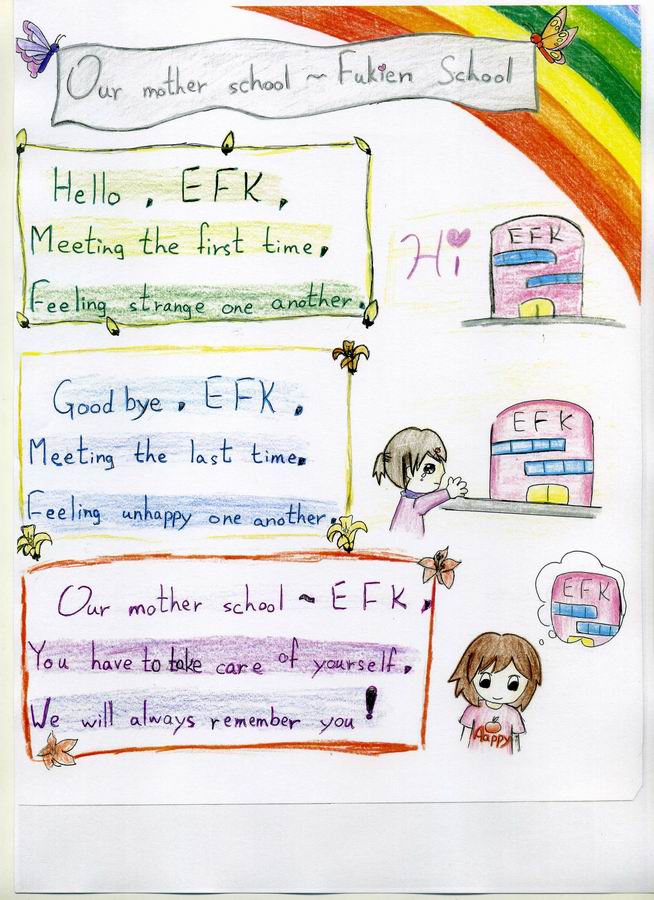 Our mother school ~ Fukien School
Hello, EFK,
Meeting the first time,
Feeling strange one another.
Hi
EFK
Good bye, EFK,
Meeting the last time.
Feeling unhappy one another.
EFK
Our mother school ~ EFK,
You have to take care of yourself.
We will always remember you!
EFK
Aappy